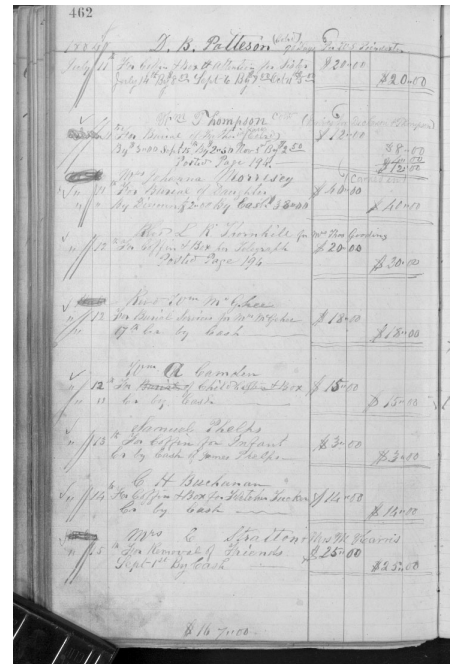 462
D. B. Patteson
July 11 For Coffin & Box & Attention for Sister $20-00
July 14th By Sept 6 By $20-00
Mrs Thompson
For Burial of $12-00
By $3-00 Sept 12 By 2-50 Nov 5 By 2 50 $8-00
Posted Page 195 $12-00
Mrs Johanna Morrisey
11 For Burial of Daughter $40-00
By Discount $2-00 By Cash $38-00 $40-00
L. R. Thornhill for Mrs Thos Gooding
12 For Coffin & Box $20-00
Posted Page 194 $20-00
Revd Wm McGhee
12 For Burial Service for Mrs McGhee $18-00
Cr by Cash $18-00
Wm A Camden
12 For of Child Coffin & Box $15-00
12 Cr by Cash $15-00
Samuel Phelps
13 For Coffin for Infant $3-00
Cr by Cash of James Phelps $3-00
C H Buchanan
14 For Coffin & Box for $14-00
Cr by Cash $14-00
Mrs C Stratton Mrs M Harris
15 For Removal of Friends $25-00
Sept 1st By Cash $25-00
$167-00